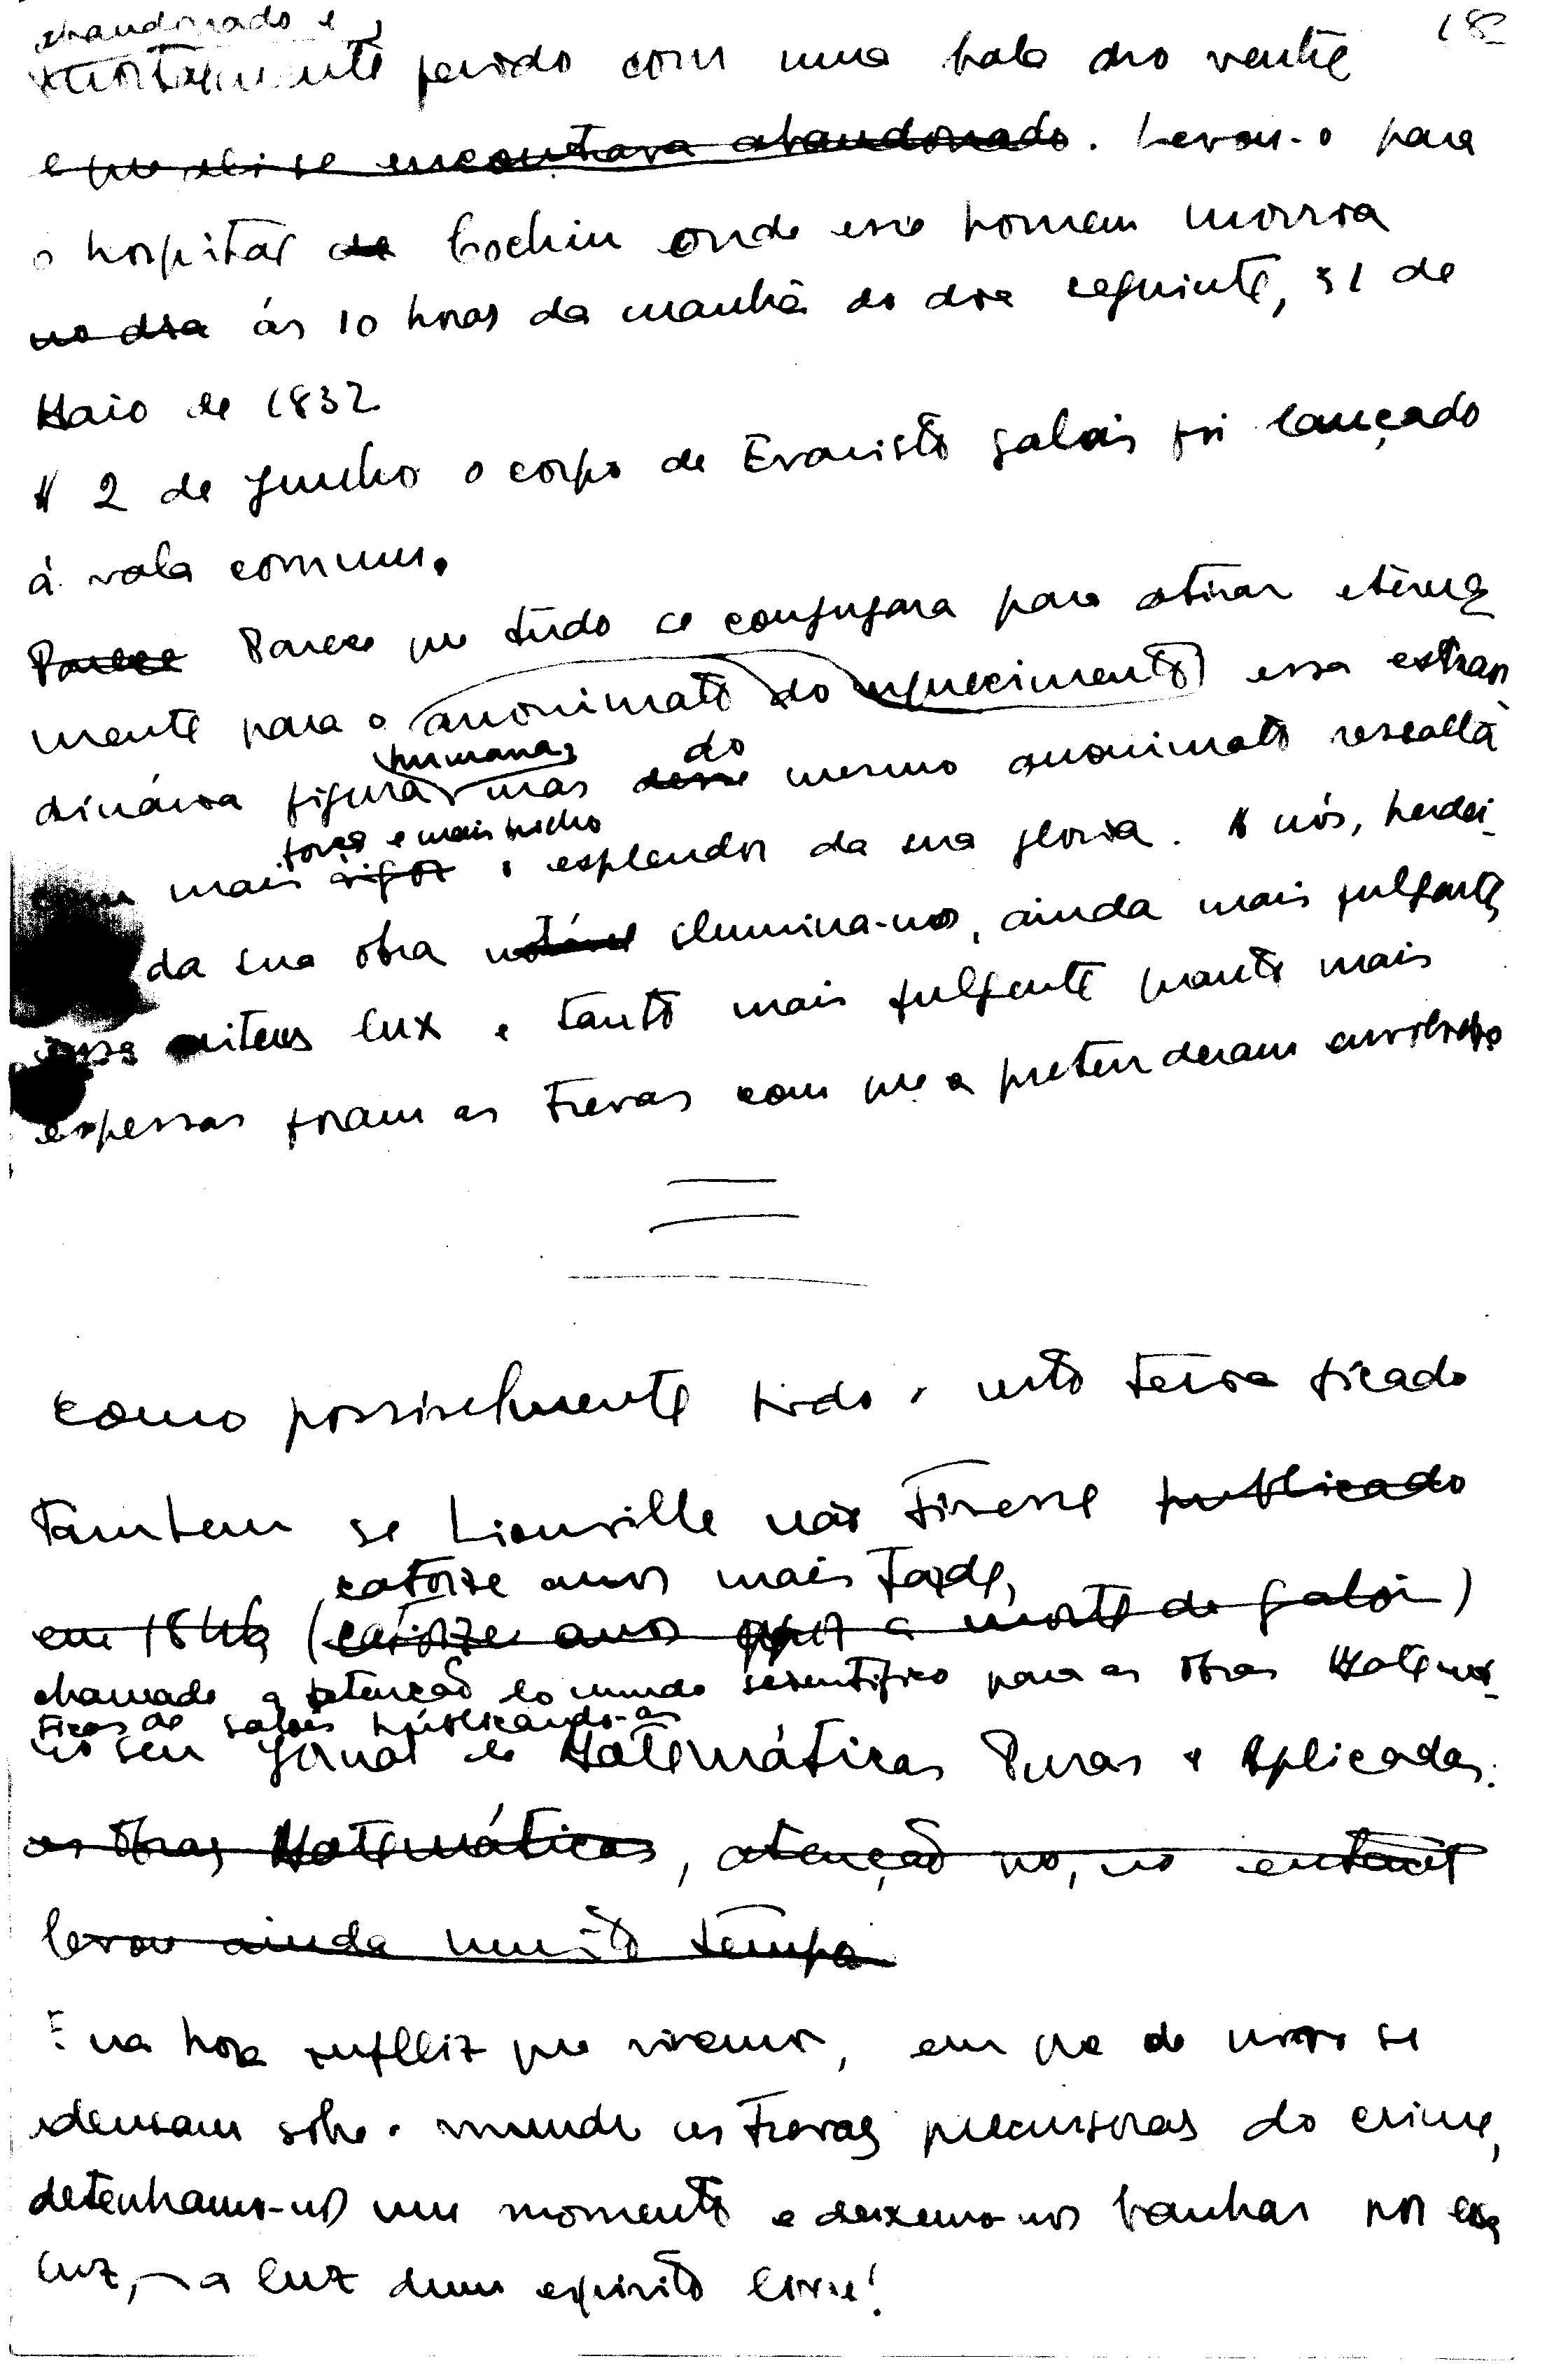 18
abandonado e
mortalmente ferido com uma bala no ventre
e que ali se encontrava abandonado. Levou-o para
o hospital de Cochin onde esse homem morria
no dia ás 10 horas da manhã do dia seguinte, 31 de
Maio de 1832
A 2 de Junho o corpo de Evaristo Galois foi lançado
á vala comum.
Parece Parece que tudo se conjugara para atirar eterna
mente para o anonimato do esquecimento essa extraor
dinária figura humana, mas desse do mesmo anonimato ressalta
força e mais brilho
com mais vigor o esplendor da sua gloria. A nós, herdei
da sua obra notável ilumina-nos, ainda mais fulgente,
essa lux e tanto mais fulgente quanto mais
espessas foram as trevas com que a pretenderam envolver
como possivelmente tudo isto teria ficado
tambem se Liouville não tivesse publicado
catorze anos mais tarde,
em 1846 (catorze anos após a morte de Galois)
chamado a atenção do mundo scientifico para as obras Matemá
ticas de Galois publicando-as
no seu Jornal de Matemáticas Puras e Aplicadas.
as obras Matemáticas, atenção que, no entanto
levou ainda muito tempo
E na hora infeliz que vivemos, em que de novo se
adensam sobre o mundo as trevas precursoras do crime,
detenhamo-nos um momento e deixemo-nos banhar por essa
luz, – a luz dum espirito livre!